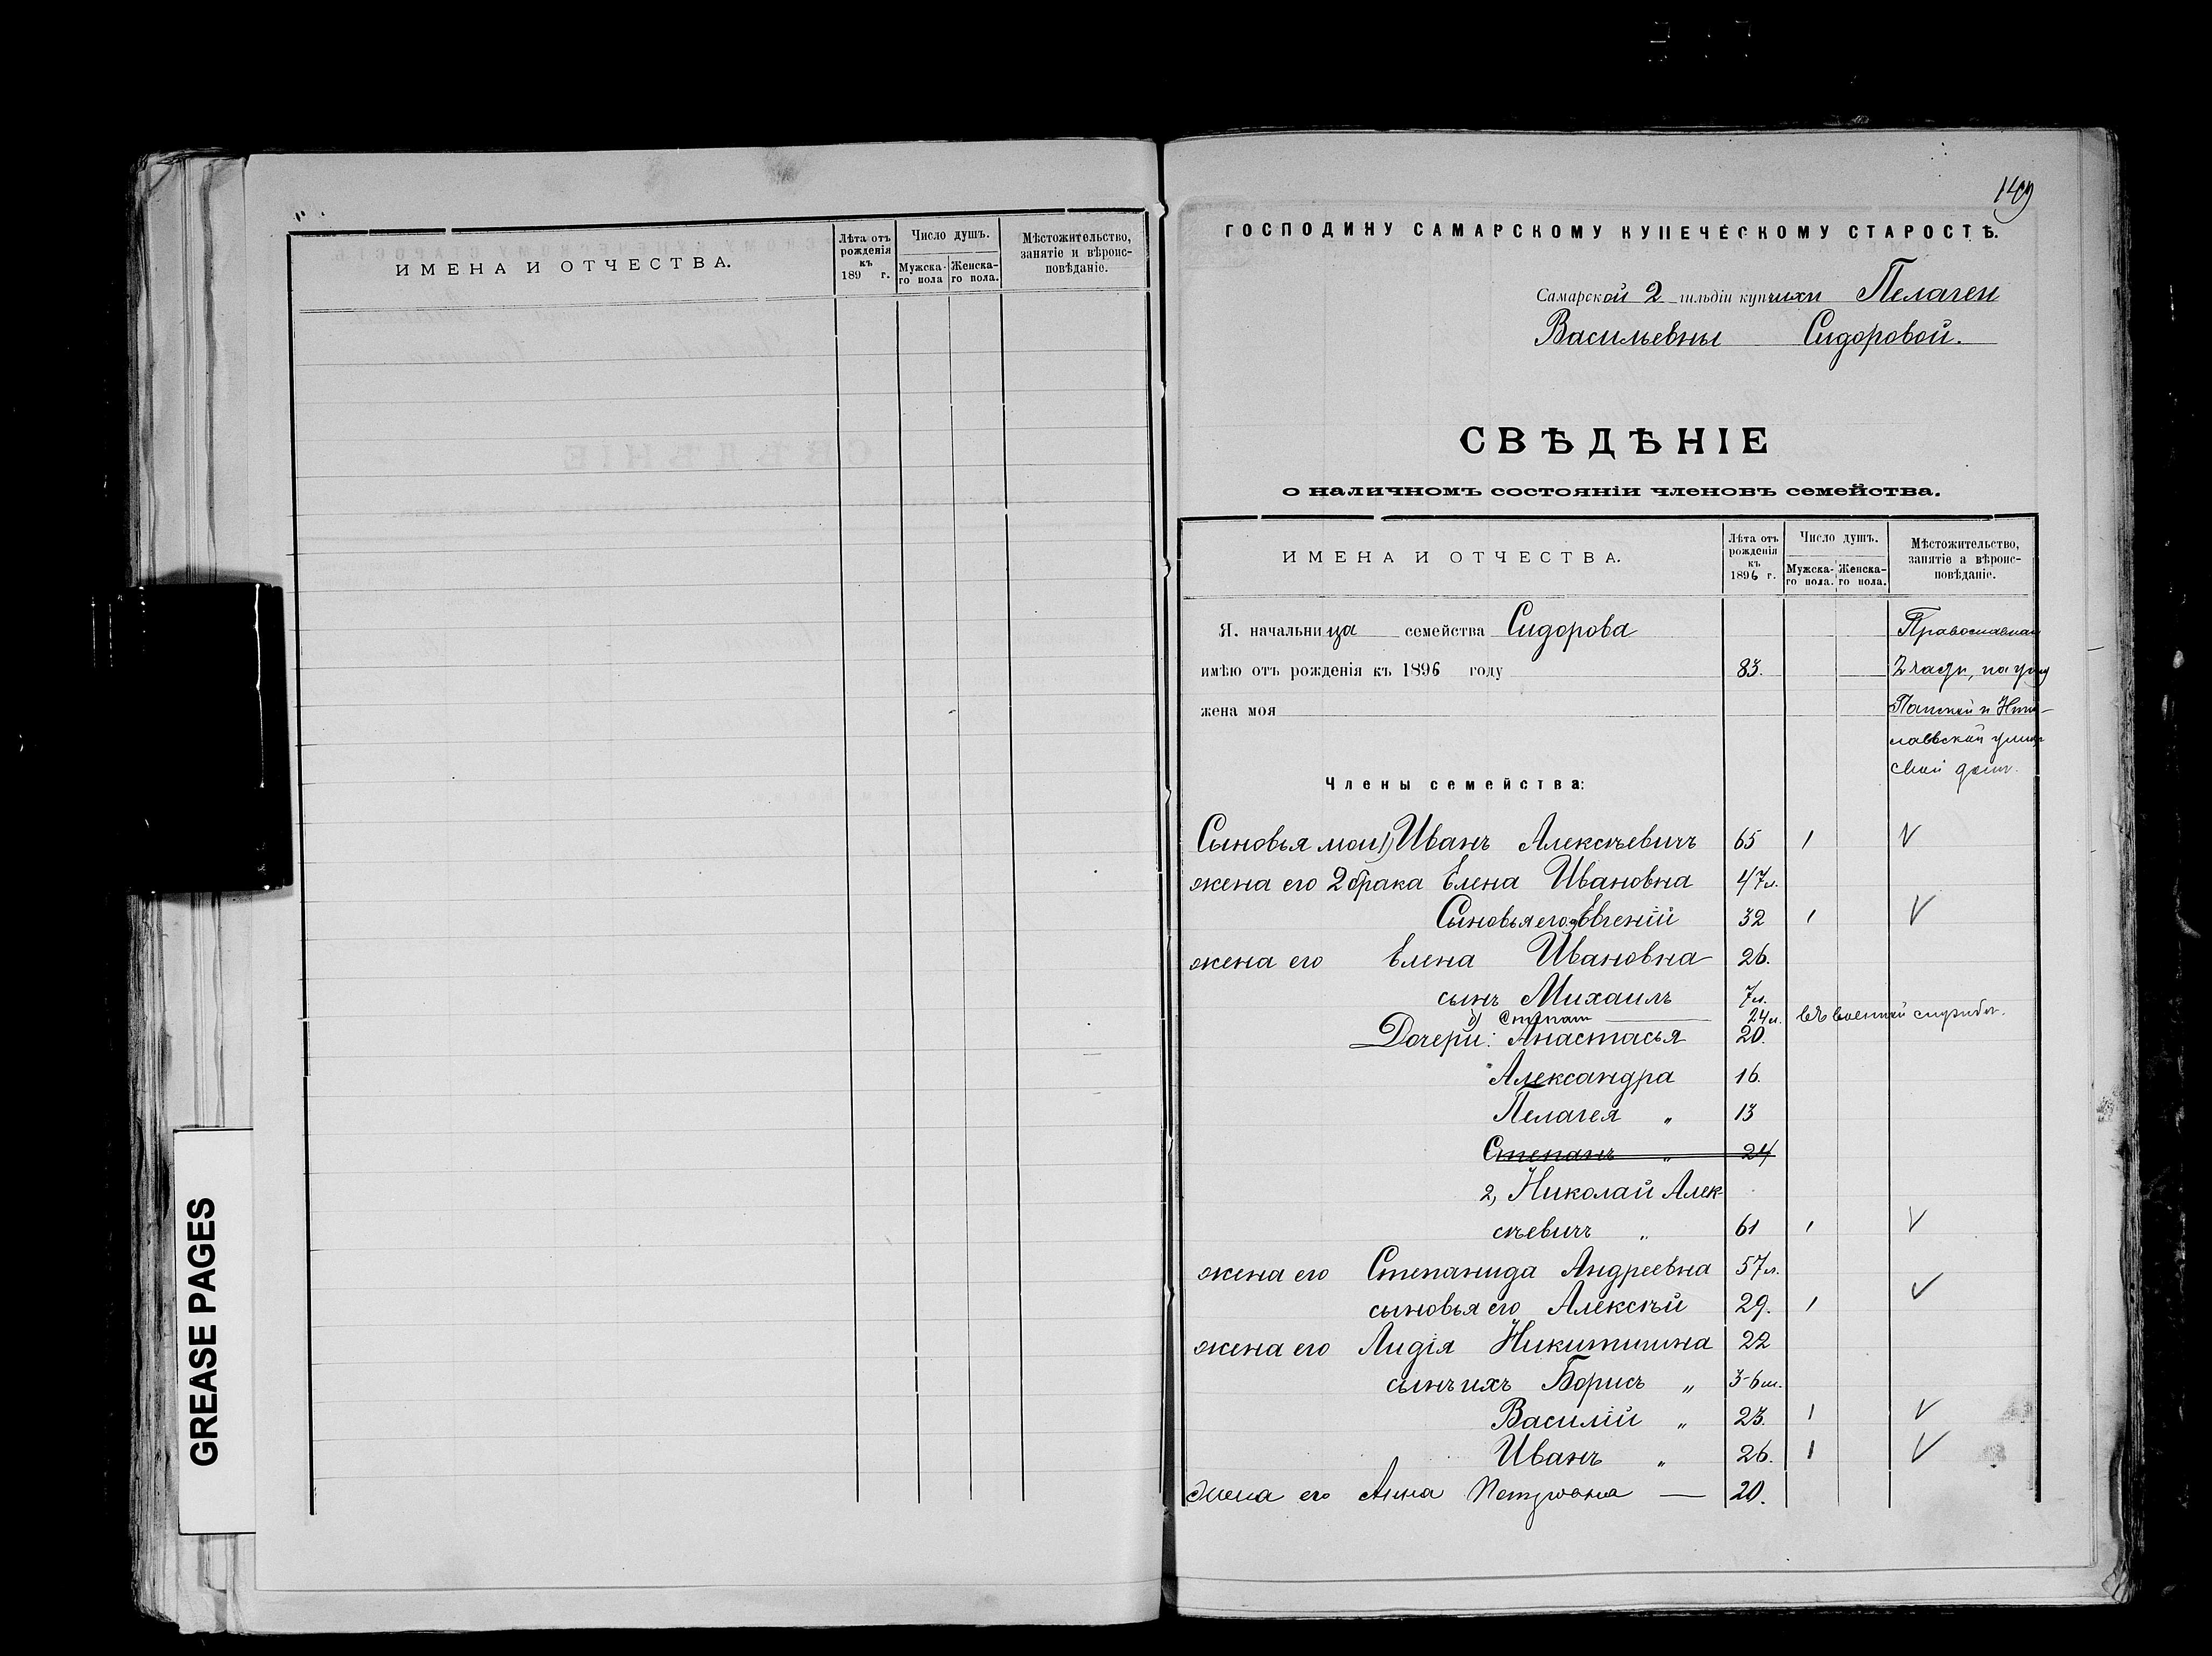 ИМЕНА И ОТЧЕСТВА.
Лѣта отъ рожденія къ 189 г.
Число душъ.
Мужска-го пола
Женска-го пола.
Мѣстожительство, занятіе и вѣроис-повѣданіе.
GREASE PAGES
149
ГОСПОДИНУ САМАРСКОМУ КУПЕЧЕСКОМУ СТАРОСТѢ.
Самарской 2 гильдіи купчихи Пелагеи
Васильевны Сидоровой.
СВѢДѢНІЕ
о наличномъ состояніи членовъ семейства.
ИМЕНА И ОТЧЕСТВА.
Лѣта отъ рожденія къ 1896 г.
Число душъ.
Мужска-го пола.
Женска-го пола.
Мѣстожительство, занятіе а вѣроис-повѣданіе.
Я. начальница семейства Сидорова Православная
имѣю отъ рожденія къ 1896 году 83. 2 части, на углу
жена моя Панской и
улицъ
свой домъ.
Члены семейства:
Сыновья мои 1) Иванъ Алексѣевичъ 65 1 V
жена его 2 брака Елена Ивановна 47 л.
Сыновья его Евгеній 32 1 V
жена его Елена Ивановна 26.
сынъ Михаилъ 7 л.
Степанъ 24 л. въ военной службѣ.
Дочери: Анастасья 20.
Александра 16.
Пелагея „ 13
Степанъ „ 24
2, Николай Алек
сѣевичъ „ 61 1 V
жена его Степанида Андреевна 57 л.
сыновья его Алексѣй 29. 1 V
жена его Лидія Никитишна 22
сынъ ихъ Борисъ „ 3-6 м.
Василій „ 23. 1 V
Иванъ „ 26. 1 V
жена его Анна Петровна — 20.